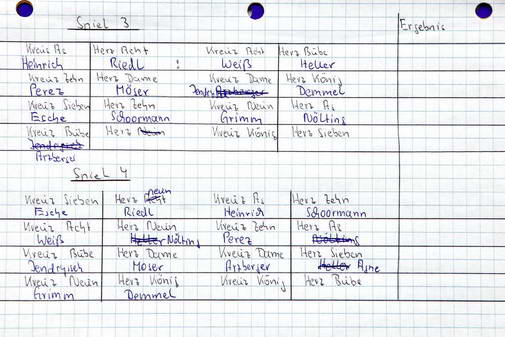 Spiel 3
Ergebnis
Kreuz As Herz Acht Kreuz Acht Herz Bübe
Heinrich Riedl : Weiß Heller
Kreuz Zehn Herz Dame Kreuz Dame Herz König
Perez Möser Demmel
Kreuz Sieben Herz Zehn Kreuz Neun Herz As
Esche Schoormann Grimm Nölting
Kreuz Bübe Herz Neun Kreuz König Herz Sieben
Arzberger
Spiel 4
neun
Kreuz Sieben Herz Acht Kreuz As Herz Zehn
Esche Riedl Heinrich Schoormann
Kreuz Acht Herz Neun Kreuz Zehn Herz As
Weiß Heller Nölting Perez Nölting
Kreuz Bübe Herz Dame Kreuz Dame Herz Sieben
Jendrysch Möser Arzberger Heller
Kreuz Neun Herz König Kreuz König Herz Bübe
Grimm Demmel